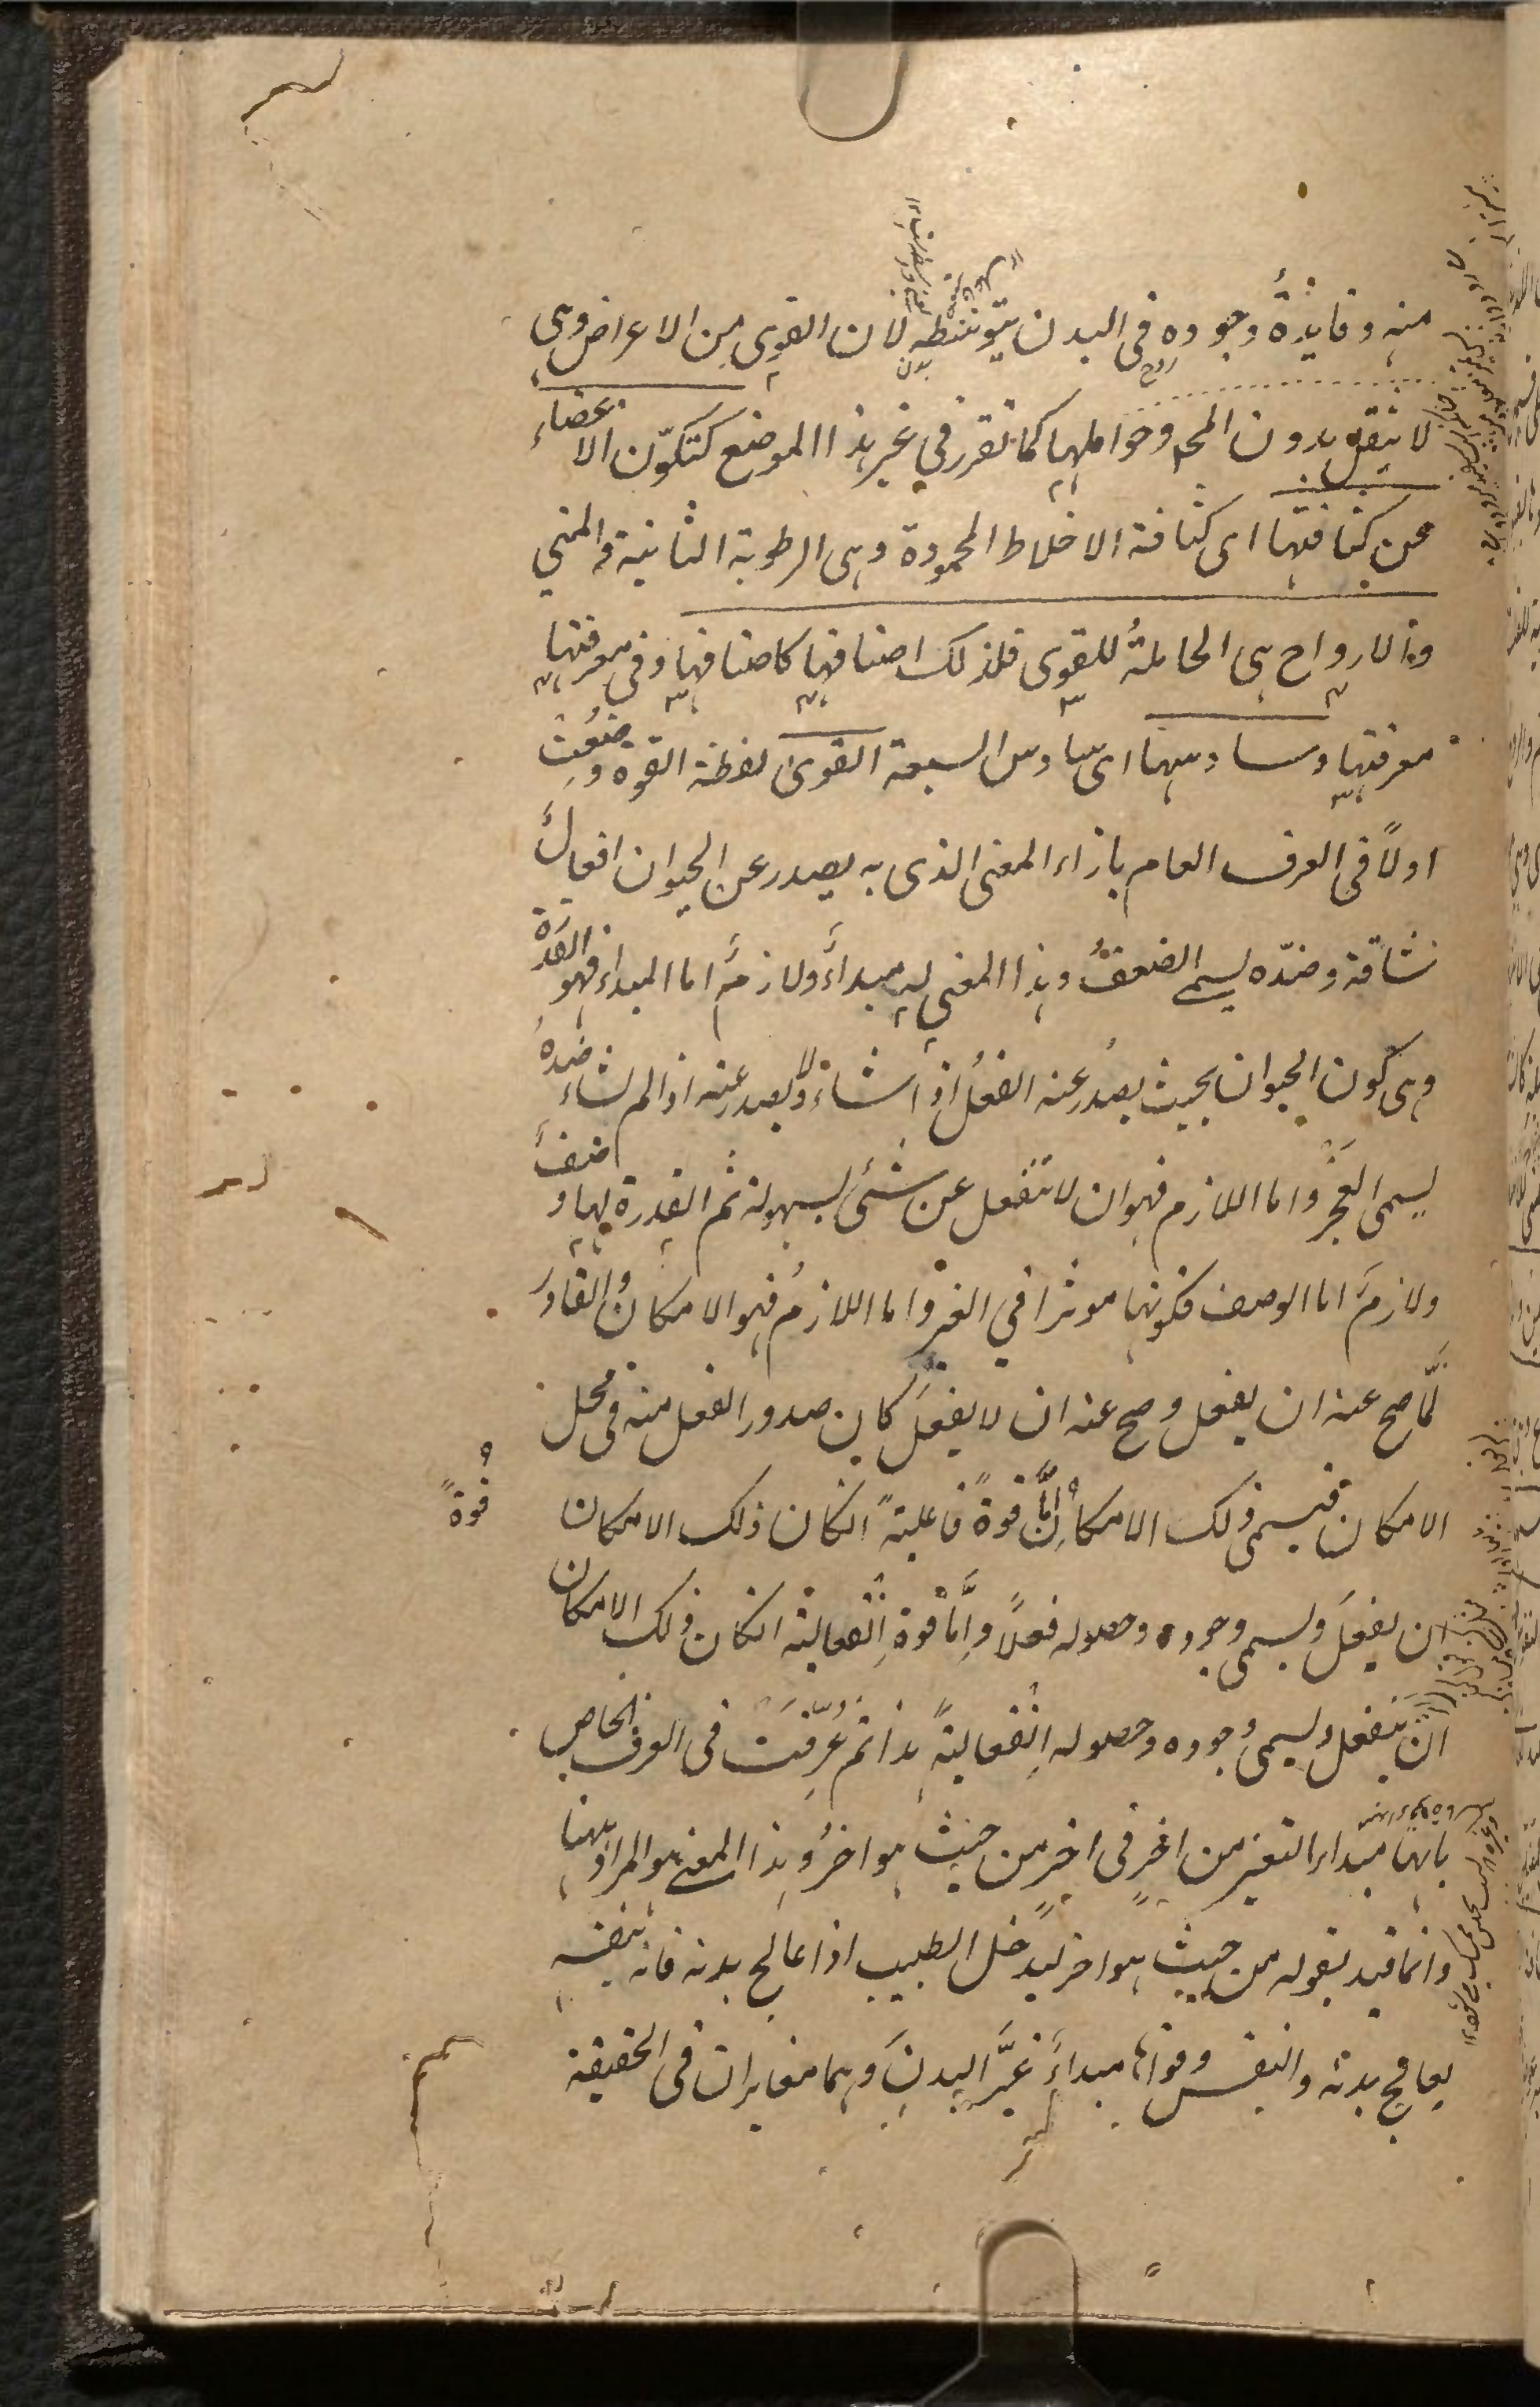 منه وفايدةُ وجوده فى البدن يتوسطه لان القوى من الاعراض وهى
لا تنتقل بدون المحل وحواملها كما تقرر في غير هذا الموضع كتكوّن الاعضاء
عن كثافتها اى كثافة الاخلاط المحمودة وهى الرطوبة الثانية والمني
والارواح هى الحاملةُ للقوى فلذلك اصنافها كاصنافها وفى معرفتها
معرفتها وسادسها اى سادس السبعة القوى لفظة القوة وضِعُت
اولاً فى العرف العام بازاء المعنى الذى به يصدر عن الحيوان افعالٌ
شاقة وضدّه يسمى الضعفُ وهذا المعنى له مبداءٌ ولازمٌ اما المبداء فهو القدرة
وهى كون الحيوان بحيث يصدُر عنه الفعلُ اذا شاء ولا يصدر عنه اذا لم يشاء ضدهُ
يسمى العَجْزُ واما اللازم فهو ان لا تنفعل عن شئى بسهولة ثم القدرة لها وصفٌ
ولازمٌ اما الوصف فكونها موثرا في الغير واما اللازمُ فهو الامكانُ والقادرُ
لَمّا صح عنه ان يفعل وصح عنه ان لا يفعلَ كان صدور الفعل منه فى محل
الامكان فيسمى ذلك الامكانُ اِمَّا قوةً فاعليةً انكان ذلك الامكان
قوةً
ان يفعلَ ويسمى وجوده وحصوله فعلاً واِمَّا قوة اِنْفعالية انكان ذلك الامكان
انْ ينفعل ويسمى وجوده وحصوله اِنْفعاليةً هذا ثم عُرِّفَتْ فى العرف الخاص
بانها مبداء التغير من اخر فى اخر من حيث هو اخرُ وهذا المعنى هو المراد ههنا
وانما قيد بقوله من حيث هو اخر ليدخل الطبيب اذا عالج بدنه فانه بنفسه
يعالج بدنه والنفس وقواها مبداءٌ تغيَّر البدنَ وهما مغايران فى الحقيقة